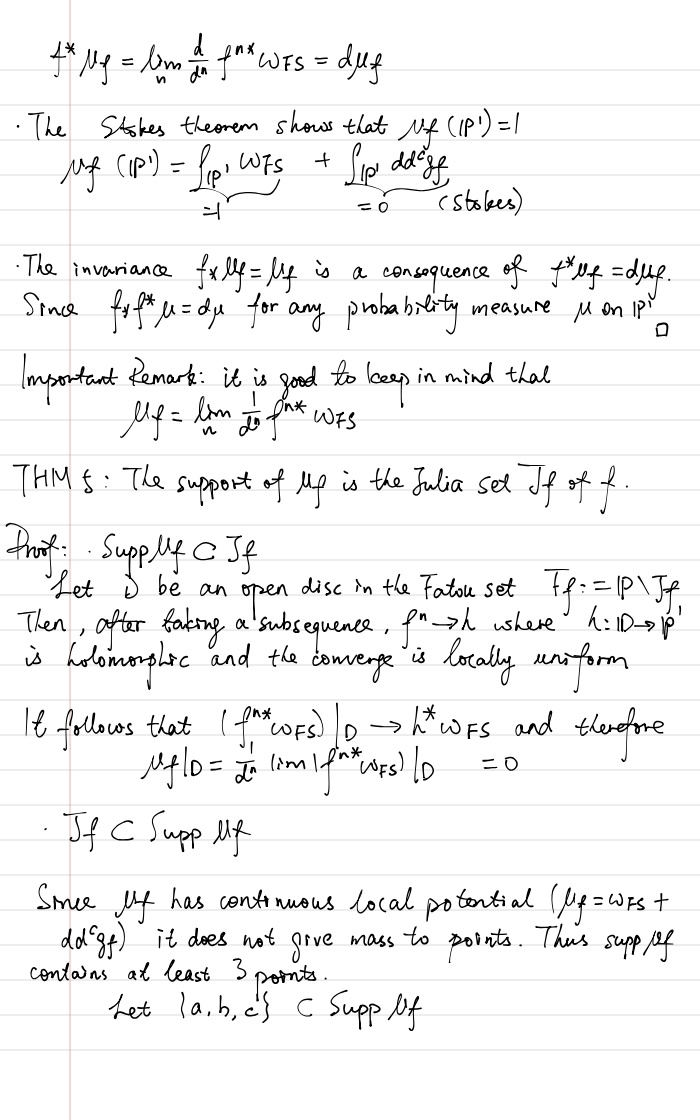 f* μf = lim_n d/dⁿ fⁿ* ωFS = dμf
· The Stokes theorem shows that μf (ℙ¹) = 1
μf (ℙ¹) = ∫_ℙ¹ ωFS + ∫_ℙ¹ ddᶜgf
=1 = 0 (Stokes)
· The invariance f_* μf = μf is a consequence of f*μf = dμf.
Since f_* f* μ = dμ for any probability measure μ on ℙ¹ □
Important Remark: it is good to keep in mind that
μf = lim_n 1/dⁿ fⁿ* ωFS
THM 5: The support of μf is the Julia set Jf of f.
Proof: · Supp μf ⊂ Jf
Let D be an open disc in the Fatou set Ff := ℙ \ Jf
Then, after taking a subsequence, fⁿ → h where h: D → ℙ¹
is holomorphic and the converge is locally uniform
It follows that (fⁿ* ωFS)|D → h* ωFS and therefore
μf|D = 1/dⁿ lim (fⁿ* ωFS)|D = 0
· Jf ⊂ Supp μf
Since μf has continuous local potential (μf = ωFS +
ddᶜgf) it does not give mass to points. Thus supp μf
contains at least 3 points.
Let {a, b, c} ⊂ Supp μf